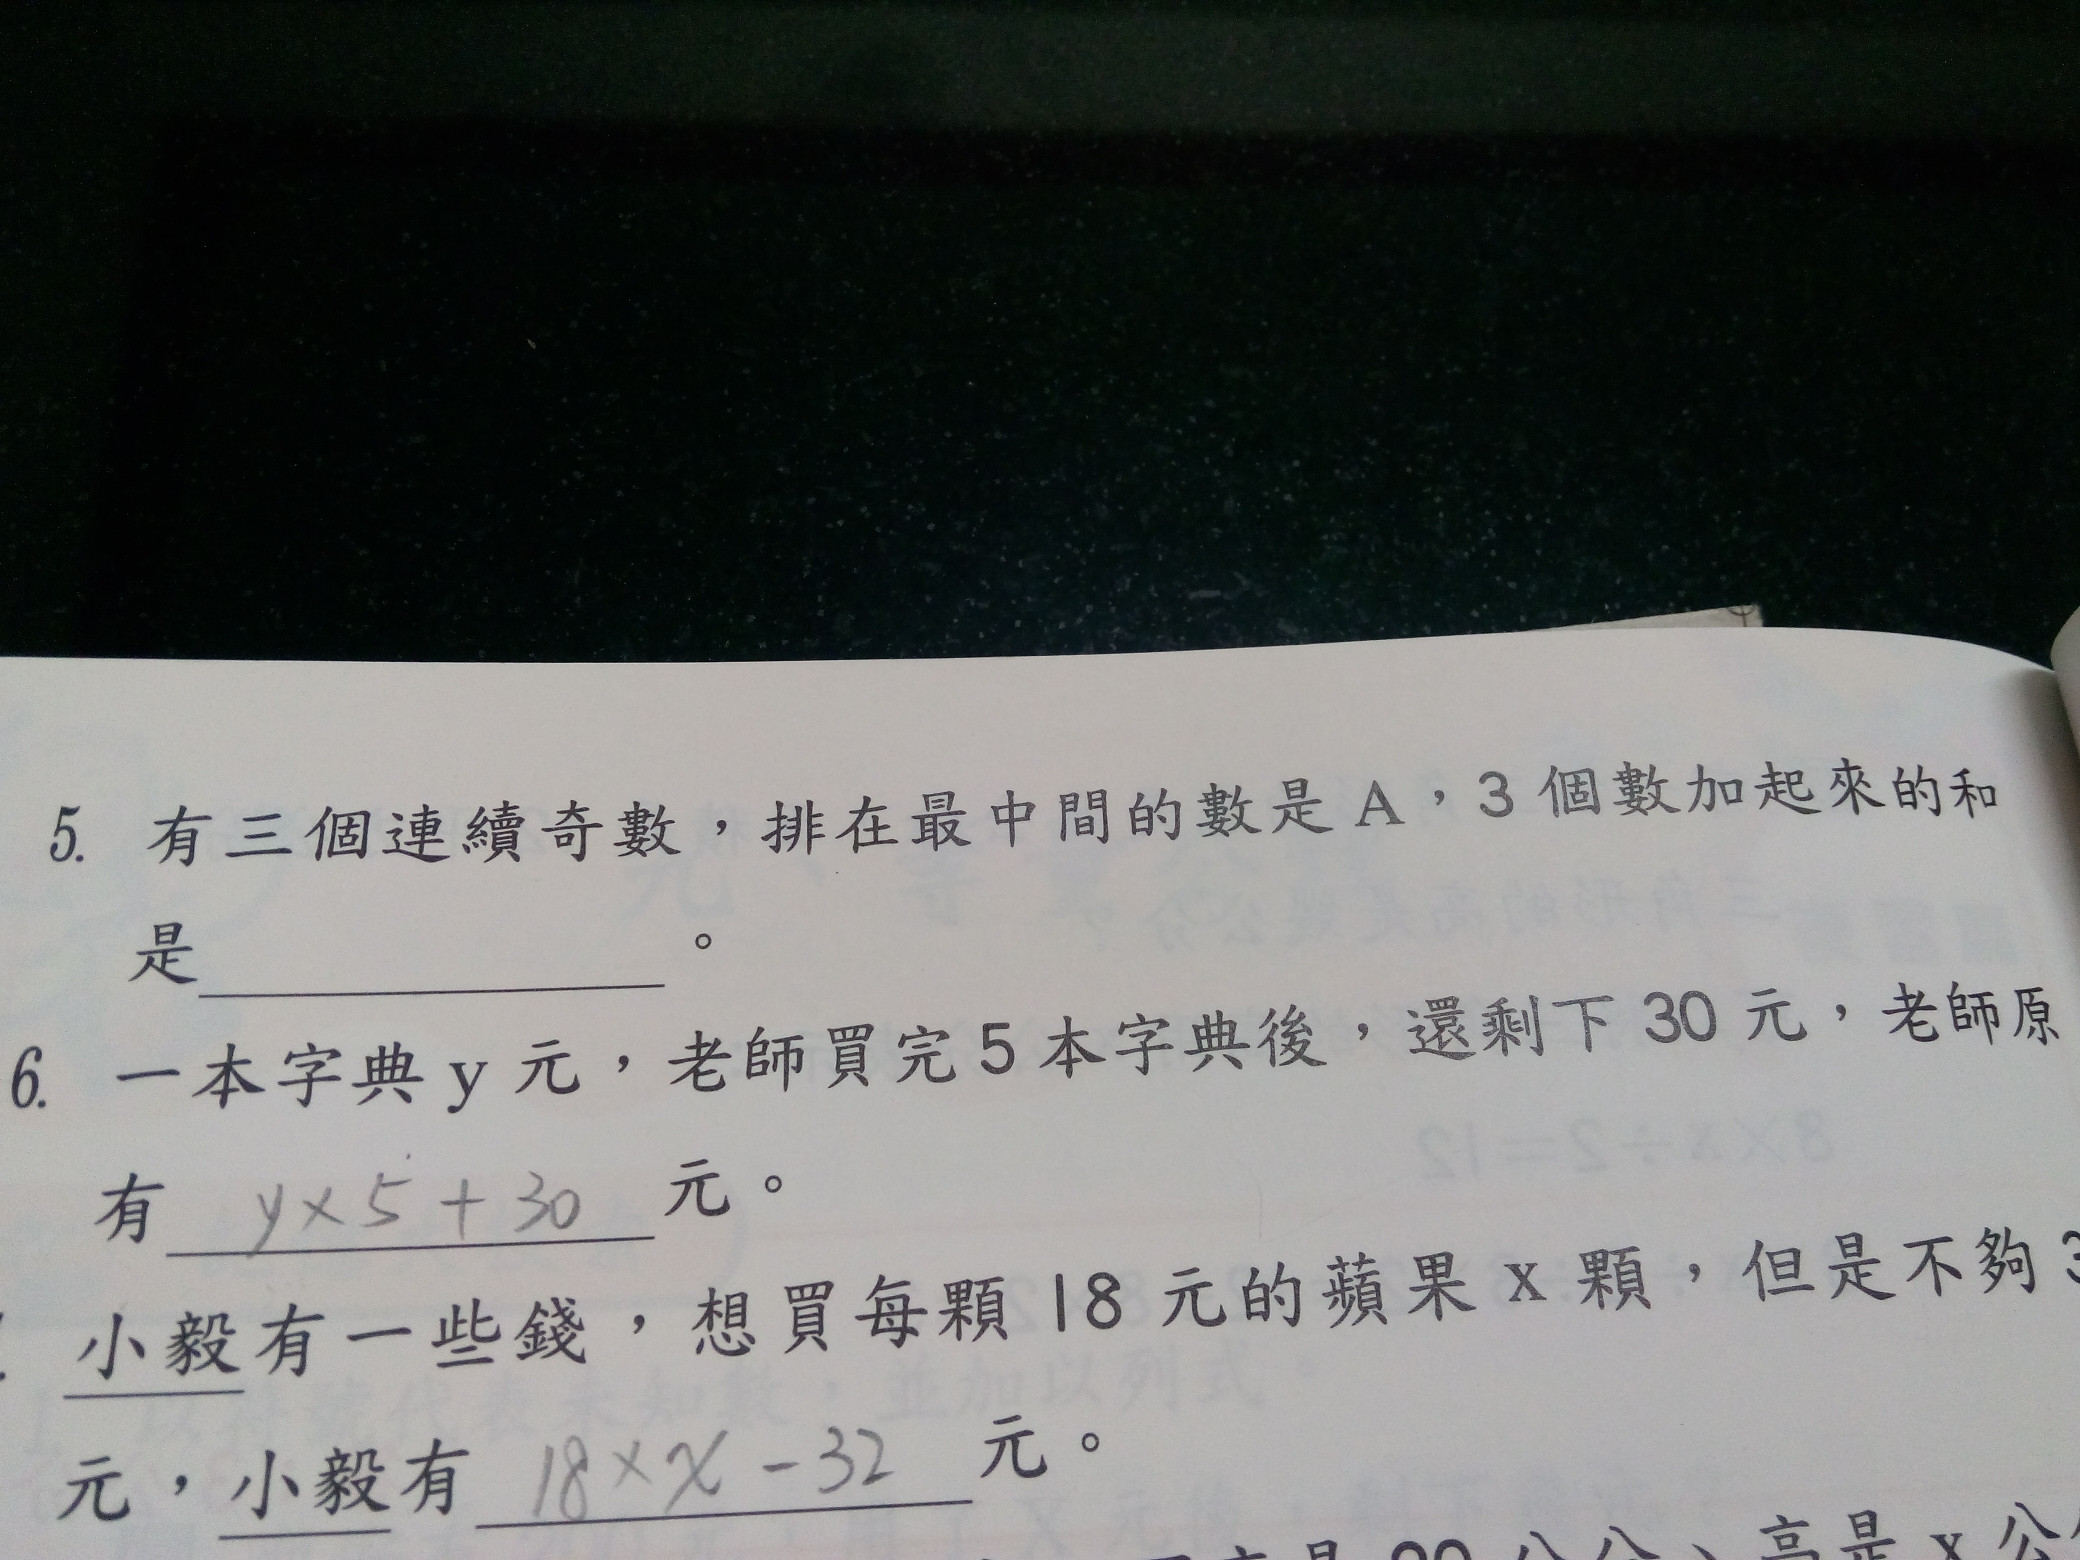 5. 有三個連續奇數，排在最中間的數是A，3個數加起來的和
是＿＿＿＿＿＿。
6. 一本字典y元，老師買完5本字典後，還剩下30元，老師原
有 y×5+30 元。
小毅有一些錢，想買每顆18元的蘋果x顆，但是不夠3
元，小毅有 18×x-32 元。
高是x公